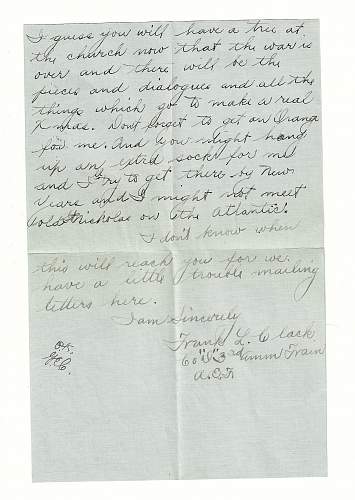 I guess you will have a tree at
the church now that the war is
over and there will be the
pieces and dialogues and all the
things which go to make a real
Xmas. Dont forget to get an Orange
for me. And you might hang
up an extra sock for me
and I try to get there by New
Years and I might not meet
old St Nicholas on the Atlantic.
I don't know when
this will reach you for we
have a little trouble mailing
letters here.
I am Sincerely
Frank L. Clack
Co "D" 3rd Amm Train
A.E.F.
O.K.